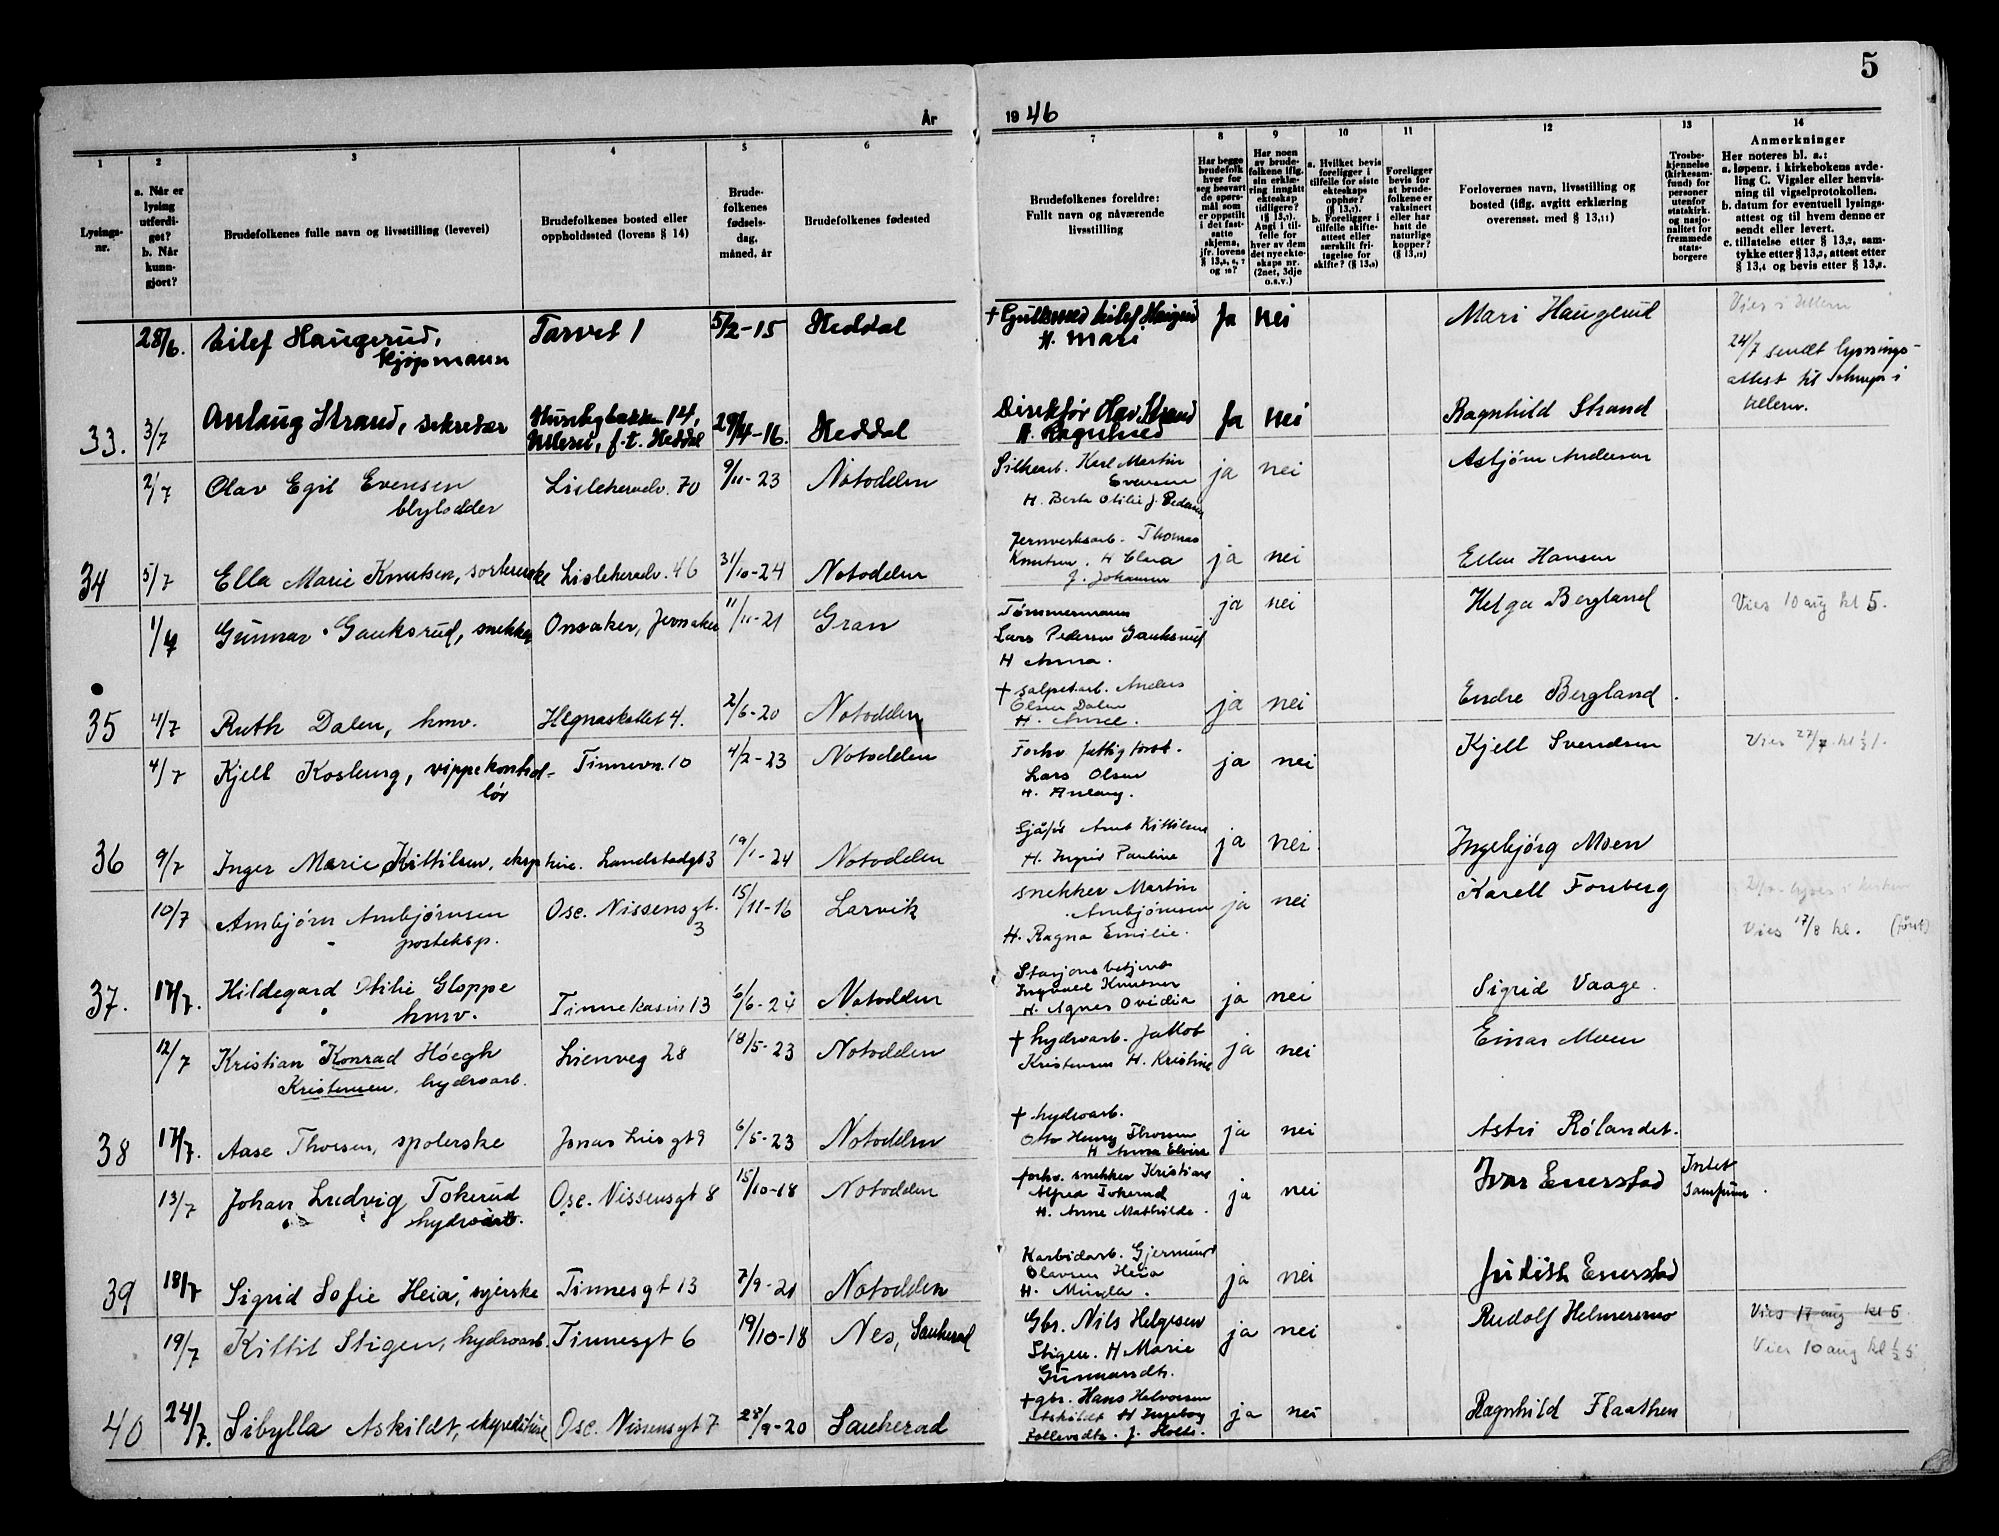 5
År
19 46
1
2
3
4
5
6
7
8
9
10
11
12
13
14
Lysings-
nr.
a. Når er
lysing
utferdi-
get?
b. Når
kunn-
gjort?
Brudefolkenes fulle navn og livsstilling (levevei)
Brudefolkenes bosted eller
oppholdssted (lovens § 14)
Brude-
folkenes
fødsels-
dag,
måned, år
Brudefolkenes fødested
Brudefolkenes foreldre:
Fullt navn og nåværende
livsstilling
Har begge
brudefolk
hver for
seg besvart
de spørs-
mål som
er oppstilt
i det fast-
satte
skjema,
jfr. lovens
Har noen
av brude-
folkene iflg.
sin erklæ-
ring inngått
ekteskap
tidligere?
(§ 13,7).
Angi i til-
felle for
hver av dem
det nye ekte-
skaps nr.
(2net, 3dje
o.s.v.)
a. Hvilket bevis
foreligger i
tilfelle for siste
ekteskaps
opphør?
(§ 13,7).
b. Foreligger i
tilfelle skifte-
attest eller
særskilt fri-
tagelse for
skifte? (§ 13,8)
Foreligger
bevis for
at brude-
folkene er
vaksinert
eller har
hatt de
naturlige
kopper?
(§ 13,12)
Forlovernes navn, livsstilling og
bosted (iflg. avgitt erklæring
overensst. med § 13,11)
Trosbe-
kjennelse
(kirkesam-
fund) for
personer
utenfor
statskirk.
og nasjo-
nalitet for
fremmede
stats-
borgere
Anmerkninger
Her noteres bl. a.:
a. løpenr. i kirkebokens avde-
ling C. Vigsler eller henvis-
ning til vigselprotokollen.
b. datum for eventuell lysings-
attest og til hvem denne er
sendt eller levert.
c. tillatelse etter § 13,2, sam-
tykke etter § 13,3, attest etter
§ 13,4 og bevis etter § 13,5.
28/6. Eilef Haugerud, Torvet 1 5/2-15 Heddal + Gullsmed Eilef Haugerud Ja nei Mari Haugerud Vies i Ullern
kjøpmann H. Mari
24/7 sendt lysnings-
attest til
Ullern.
33. 3/7 Anlaug Strand, sekretær Husebybakken 14, 29/4-16. Heddal Direktør Olav Strand Ja nei Ragnhild Strand
Ullern, f.t. Heddal H. Ragnhild
2/7 Olav Egil Evensen Lisleheradv. 70 9/11-23 Notodden Silkearb. Karl Martin ja nei Asbjørn Andersen
blylodder Evensen
H. Berta Otilie f. Pedersen
34 5/7 Ella Marie Knutsen, sortererske Lisleheradv. 46 31/10-24 Notodden Jernverksarb. Thomas ja nei Ellen Hansen
Knutsen. H Clara
f. Johansen
1/7 Gunnar Gauksrud, snekker Onsaker, Jevnaker 11/11-21 Gran Tømmermann ja nei Helga Bergland Vies 10 aug kl 5.
Lars Pedersen Gauksrud
H Anna.
35 4/7 Ruth Dalen, hmv. Hegnaskottet 4. 2/6-20 Notodden + salpetarb. Anders ja nei Endre Bergland.
Olsen Dalen
H.
4/7 Kjell Kosberg, vippekontrol- Tinnevn. 10 4/2-23 Notodden Forhv. fattigforst. ja nei Kjell Svendsen Vies 27/7 kl ½1.
lør Lars Olsen
H. Anlaug.
36 9/7 Inger Marie Kittilsen, eksp.trise. Landstadgt 3 19/1-24 Notodden Sjåfør Arnt Kittilsen ja nei. Ingebjørg Moen
H. Ingrid Pauline
10/7 Arnbjørn Arnbjørnsen Osc. Nissensgt. 15/11-16 Larvik snekker Martin ja nei Karell Fonberg
posteksp. 3 Arnbjørnsen
H. Ragna Emilie. Vies 17/8 kl. (først)
37. 17/7. Hildegard Otilie Gloppe Tinnekasin 13 6/6-24 Notodden Stasjonsbetjent ja nei Sigrid Vaage.
hmv. Ingvald Knutsen
H. Agnes Ovidia
12/7 Kristian Konrad Høegh Lienveg 28 18/5-23 Notodden + hydroarb. Jakob ja nei Einar Moen
Kristensen, hydroarb. Kristensen H. Kristine
38 17/7. Aase Thorsen, spolerske Jonas Lies gt 9 6/5-23 Notodden + hydroarb. ja nei Astri Rølandet.
Otto Henry Thorsen
H Anna Elvira
13/7 Johan Ludvig Tokerud Osc. Nissensgt 8 15/10-18 Notodden forhv. snekker Kristian ja nei Ivar Enerstad Intet
hydroarb. Alfred Tokerud samfunn.
H. Anne Mathilde.
39 18/7 Sigrid Sofie Heia, syerske Tinnesgt 13 7/9-21 Notodden Karbidarb. Gjermund ja nei Judith Enerstad
Olavsen Heia
H. Minda.
19/7 Kittil Stigen, hydroarb. Tinnesgt 6 19/10-18 Nes, Sauherad Gbr. Nils Helgesen ja nei Rudolf Helmersmo Vies 17 aug kl 5.
Stigen. H Marie Vies 10 aug kl ½5
Gunnarsdtr.
40 24/7. Sibylla Askildt, ekspeditrise Osc. Nissensgt 7 28/9-20 Sauherad + gbr. Hans Halvorsen ja nei Ragnhild Flaathen
Askildt H Ingebog
f. Holte.